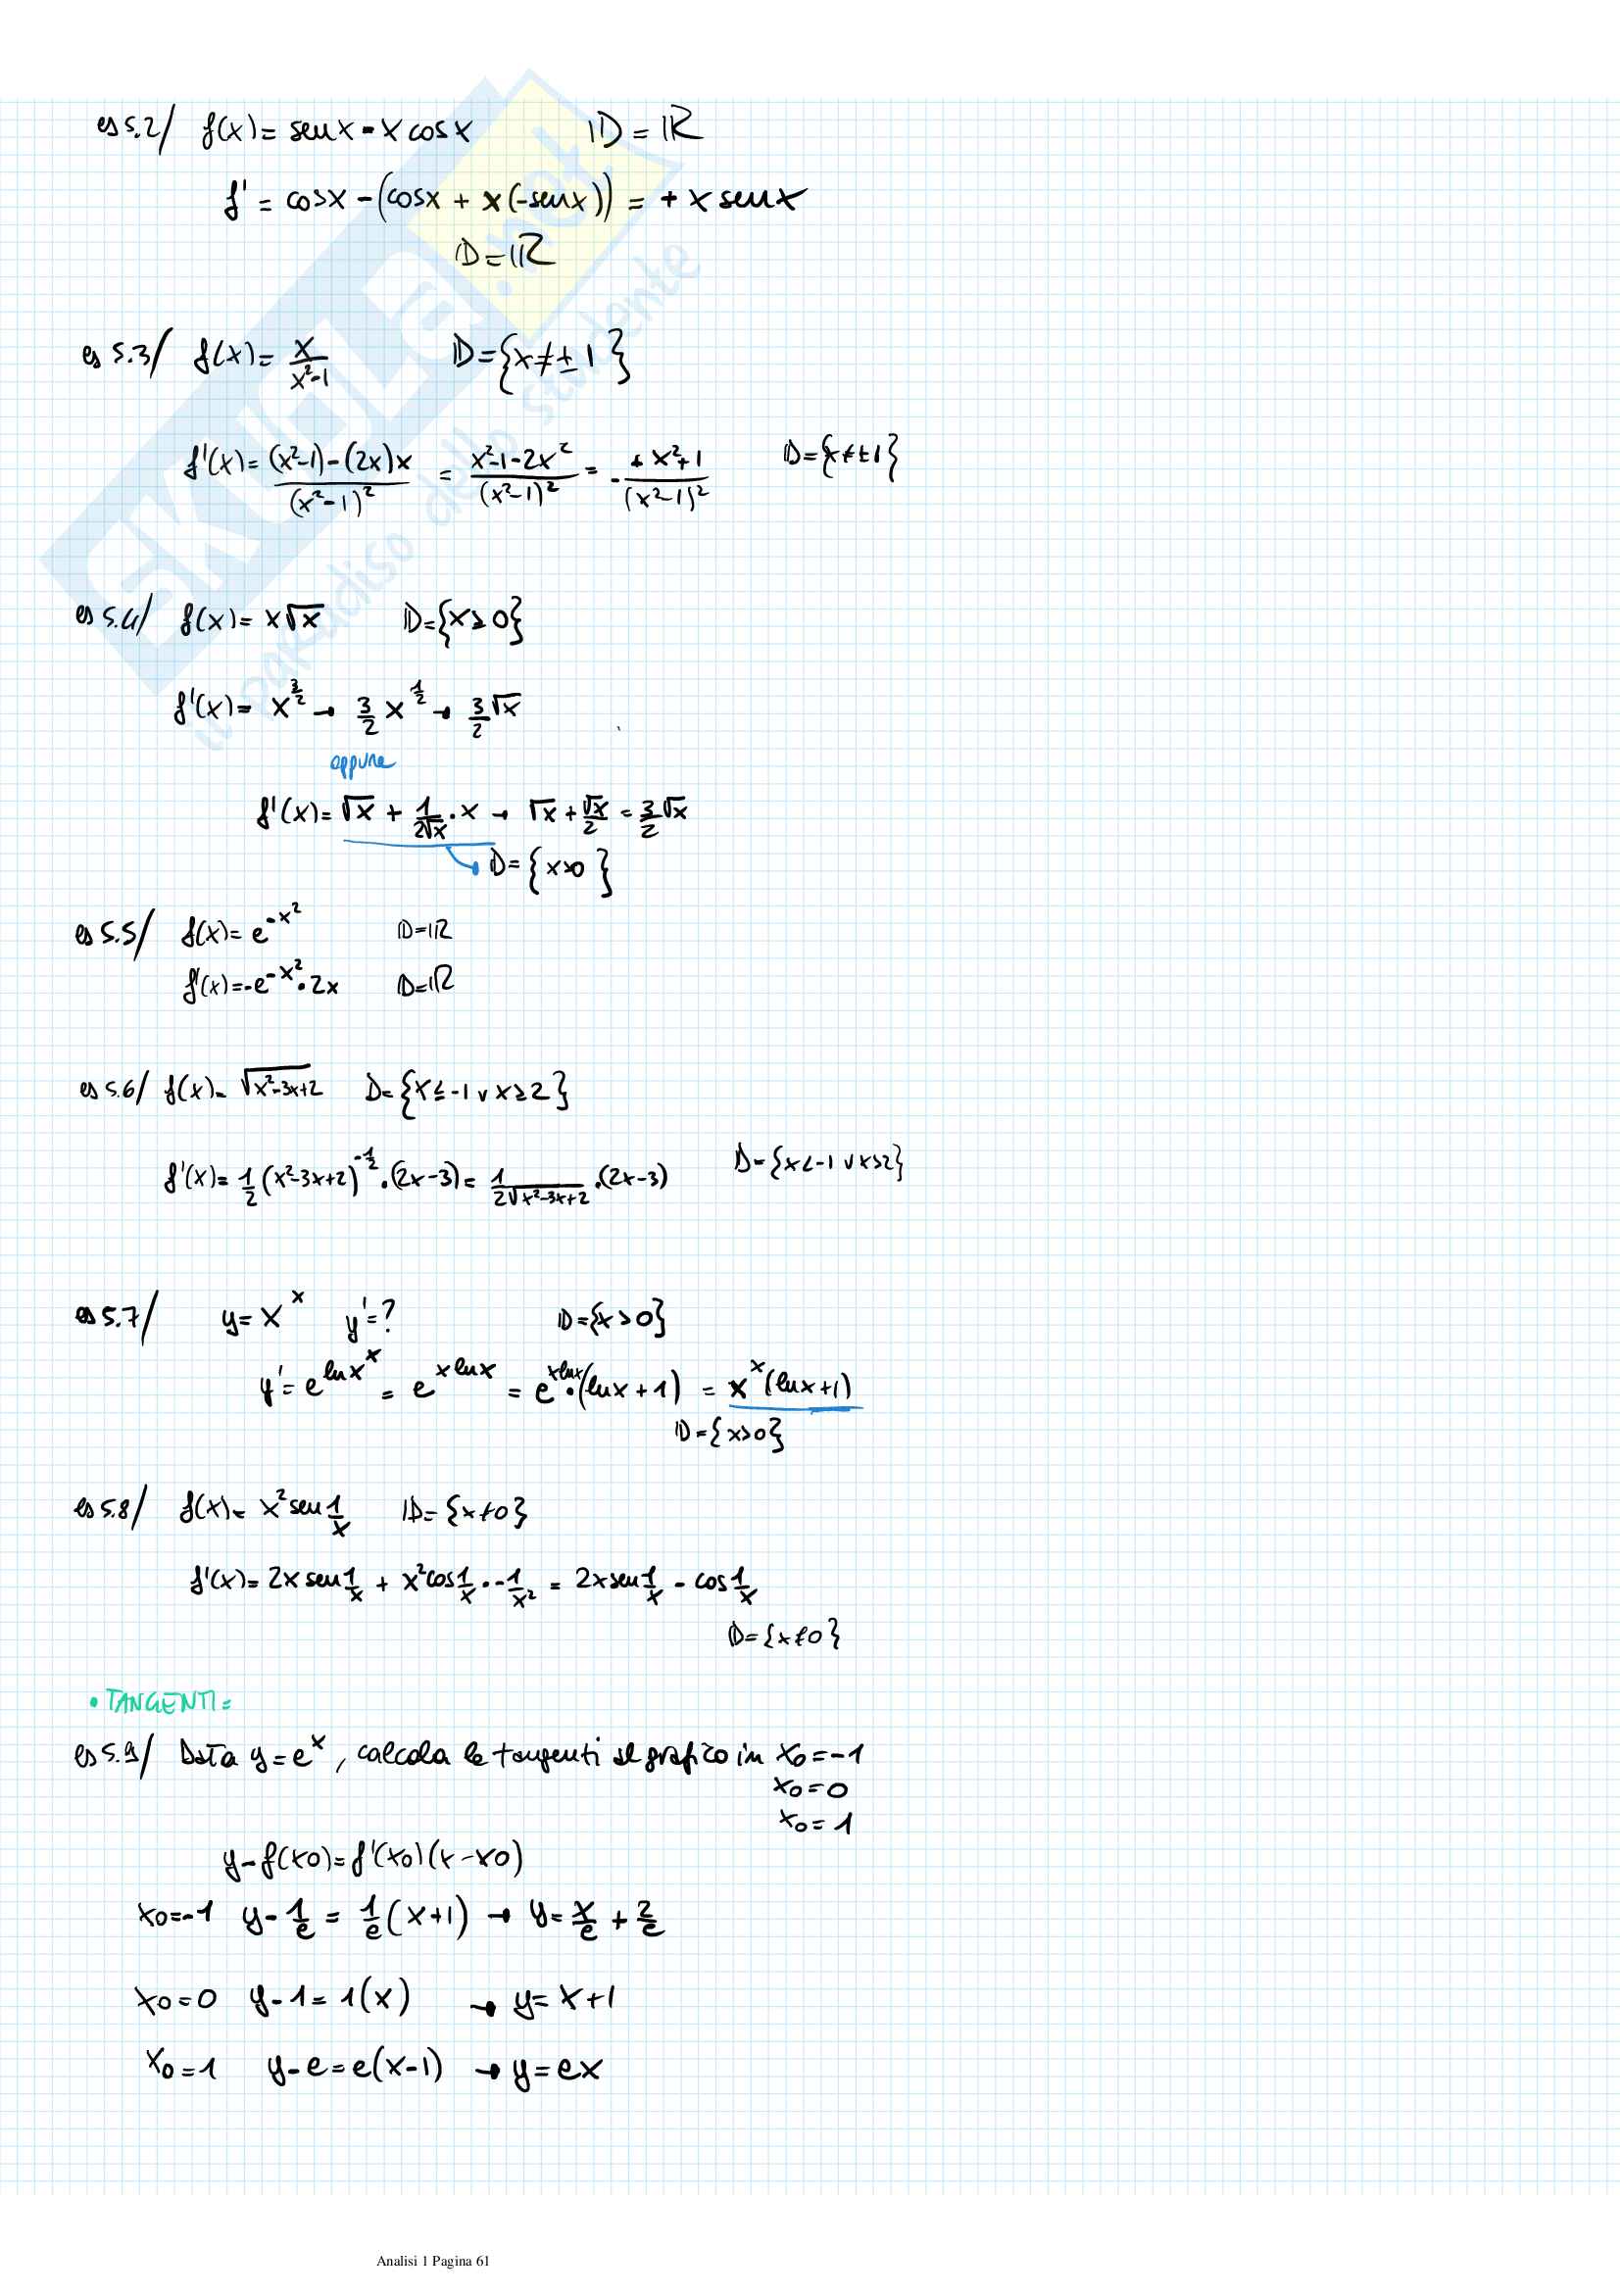 es 5.2/ f(x) = senx - x cosx D = ℝ
f' = cosx - (cosx + x(-senx)) = + x senx
D = ℝ
es 5.3/ f(x) = x/(x²-1) D = {x ≠ ± 1}
f'(x) = ((x²-1)-(2x)x)/(x²-1)² = (x²-1-2x²)/(x²-1)² = - (+x²+1)/(x²-1)² D = {x ≠ ±1}
es 5.4/ f(x) = x√x D = {x ≥ 0}
f'(x) = x^(3/2) → 3/2 x^(1/2) → 3/2 √x
oppure
f'(x) = √x + 1/(2√x) · x → √x + √x/2 = 3/2 √x
D = {x>0}
es 5.5/ f(x) = e^(-x²) D = ℝ
f'(x) = -e^(-x²) · 2x D = ℝ
es 5.6/ f(x) = √(x²-3x+2) D = {x ≤ -1 ∨ x ≥ 2}
f'(x) = 1/2 (x²-3x+2)^(-1/2) · (2x-3) = 1/(2√(x²-3x+2)) · (2x-3) D = {x < -1 ∨ x > 2}
es 5.7/ y = x^x y' = ? D = {x > 0}
y' = e^(lnx^x) = e^(x lnx) = e^(xlnx) · (lnx + 1) = x^x (lnx+1)
D = {x>0}
es 5.8/ f(x) = x² sen 1/x D = {x ≠ 0}
f'(x) = 2x sen 1/x + x² cos 1/x · - 1/x² = 2x sen 1/x - cos 1/x
D = {x ≠ 0}
• TANGENTI =
es 5.9/ Data y = e^x, calcola le tangenti al grafico in x0 = -1
x0 = 0
x0 = 1
y - f(x0) = f'(x0)(x - x0)
x0 = -1 y - 1/e = 1/e (x+1) → y = x/e + 2/e
x0 = 0 y - 1 = 1(x) → y = x+1
x0 = 1 y - e = e(x-1) → y = ex
Analisi 1 Pagina 61
SKUOLa.net
il paradiso dello studente